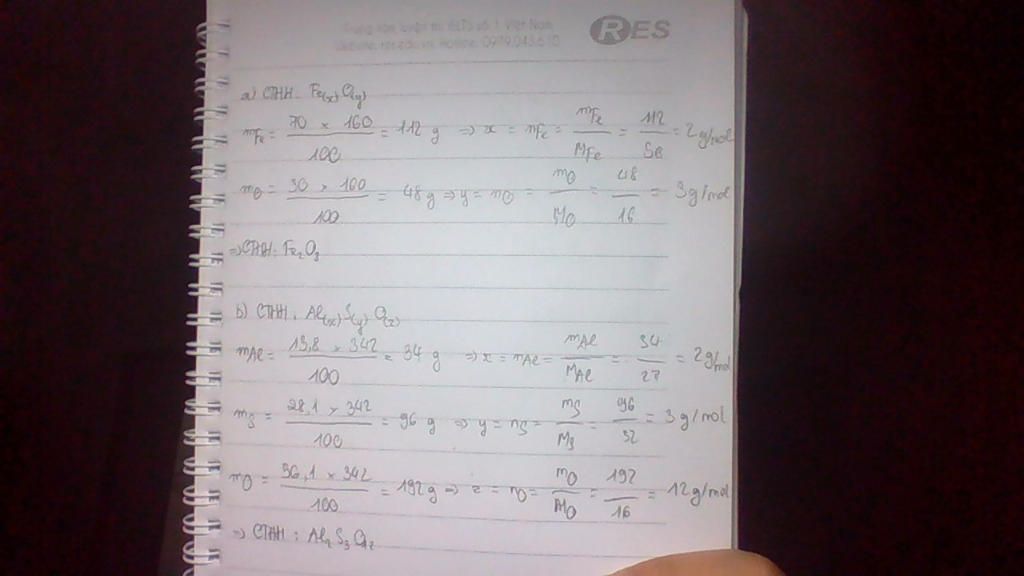 Trung tâm luyện thi IELTS số 1 Việt Nam
Website: res.edu.vn Hotline: 0979.043.610
RES
a) CTHH: Fe(x)O(y)
mFe = 70 × 160 / 100 = 112 g => x = nFe = mFe / MFe = 112 / 56 = 2 g/mol
mO = 30 × 160 / 100 = 48 g => y = nO = mO / MO = 48 / 16 = 3 g/mol
=> CTHH: Fe2O3
b) CTHH: Al(x)S(y)O(z)
mAl = 15,8 × 342 / 100 = 54 g => x = nAl = mAl / MAl = 54 / 27 = 2 g/mol
mS = 28,1 × 342 / 100 = 96 g => y = nS = mS / MS = 96 / 32 = 3 g/mol
mO = 56,1 × 342 / 100 = 192 g => z = nO = mO / MO = 192 / 16 = 12 g/mol
=> CTHH: Al2S3O12